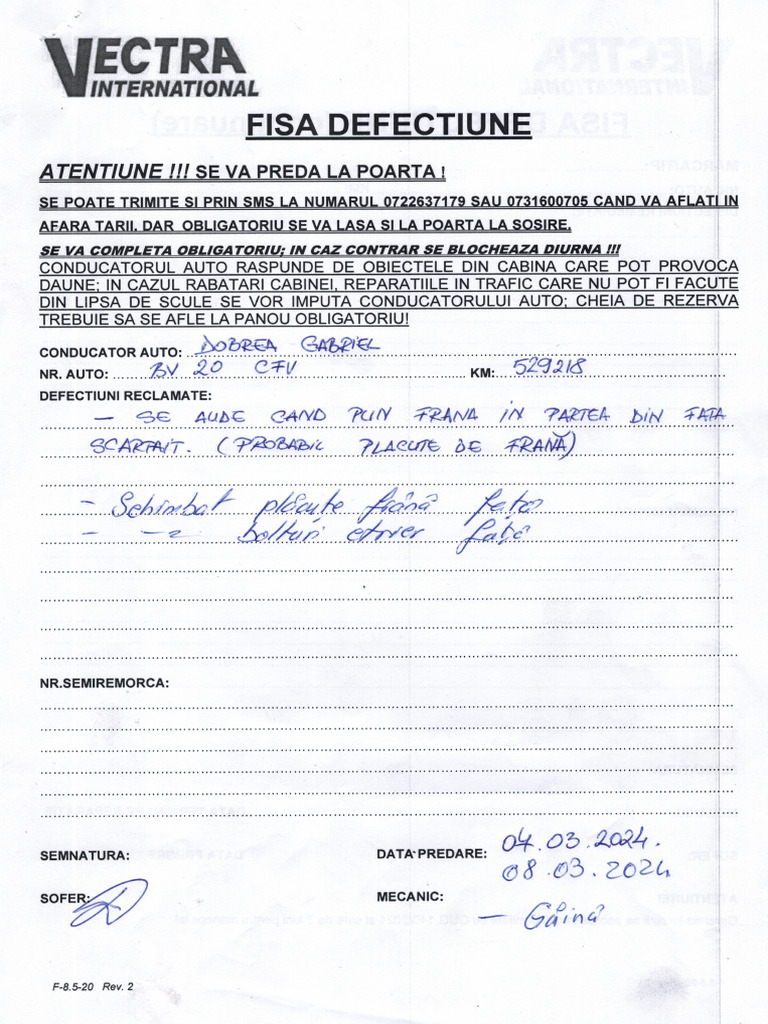 VECTRA
INTERNATIONAL
FISA DEFECTIUNE
ATENTIUNE !!! SE VA PREDA LA POARTA !
SE POATE TRIMITE SI PRIN SMS LA NUMARUL 0722637179 SAU 0731600705 CAND VA AFLATI IN
AFARA TARII. DAR OBLIGATORIU SE VA LASA SI LA POARTA LA SOSIRE.
SE VA COMPLETA OBLIGATORIU; IN CAZ CONTRAR SE BLOCHEAZA DIURNA !!!
CONDUCATORUL AUTO RASPUNDE DE OBIECTELE DIN CABINA CARE POT PROVOCA
DAUNE; IN CAZUL RABATARI CABINEI, REPARATIILE IN TRAFIC CARE NU POT FI FACUTE
DIN LIPSA DE SCULE SE VOR IMPUTA CONDUCATORULUI AUTO; CHEIA DE REZERVA
TREBUIE SA SE AFLE LA PANOU OBLIGATORIU!
CONDUCATOR AUTO: DOBREA GABRIEL
NR. AUTO: BV 20 CFV KM: 529218
DEFECTIUNI RECLAMATE:
- SE AUDE CAND PUN FRANA IN PARTEA DIN FATA
SCARTAIT. (PROBABIL PLACUTE DE FRANĂ)
- Schimbat plăcute frână față
- -"- bolturi etrier față
NR.SEMIREMORCA:
SEMNATURA: DATA PREDARE: 04.03.2024.
08.03.2024
SOFER: MECANIC:
- Găină
F-8.5-20 Rev. 2